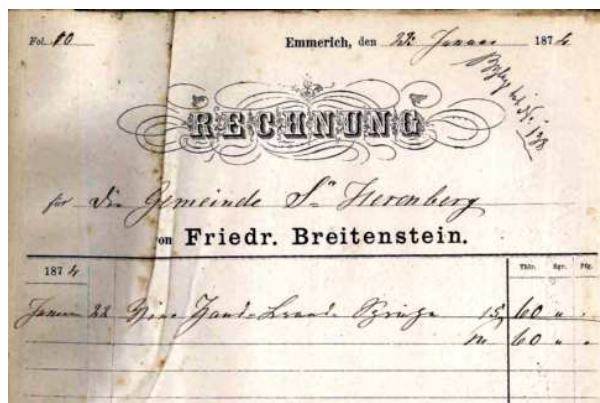 Fol. 10
Emmerich, den 22. Januar 1874
RECHNUNG
für die Gemeinde S'Heerenberg
von Friedr. Breitenstein.
1874
Thlr. Sgr. Pfg.
Januar 22 Eine Hand-Brand-Spritze 60 " "
60 " "